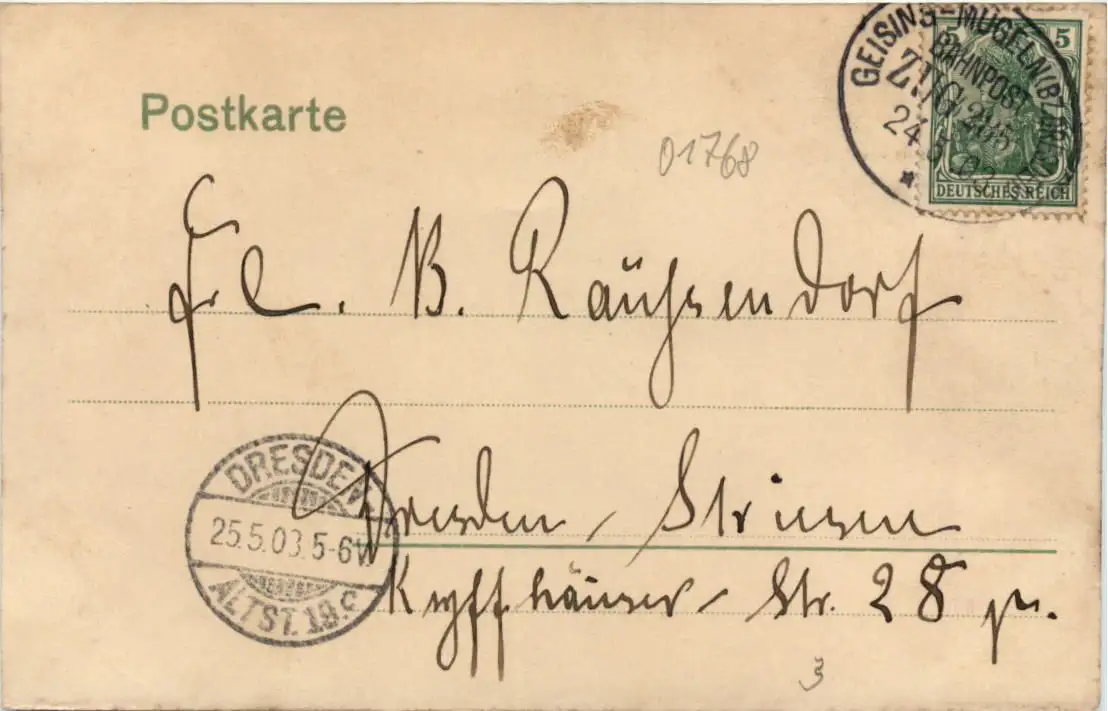 Postkarte
GEISING-MÜGELN (BZ. DRESD.)
BAHNPOST
ZUG
24.5.03
5 5
DEUTSCHES REICH
01768
Frl. B. Räuhsendorf
Dresden, Striesen
Kyffhäuser-Str. 28 pr.
DRESDEN
25.5.03.5-6V.
ALTST. 18.c
3